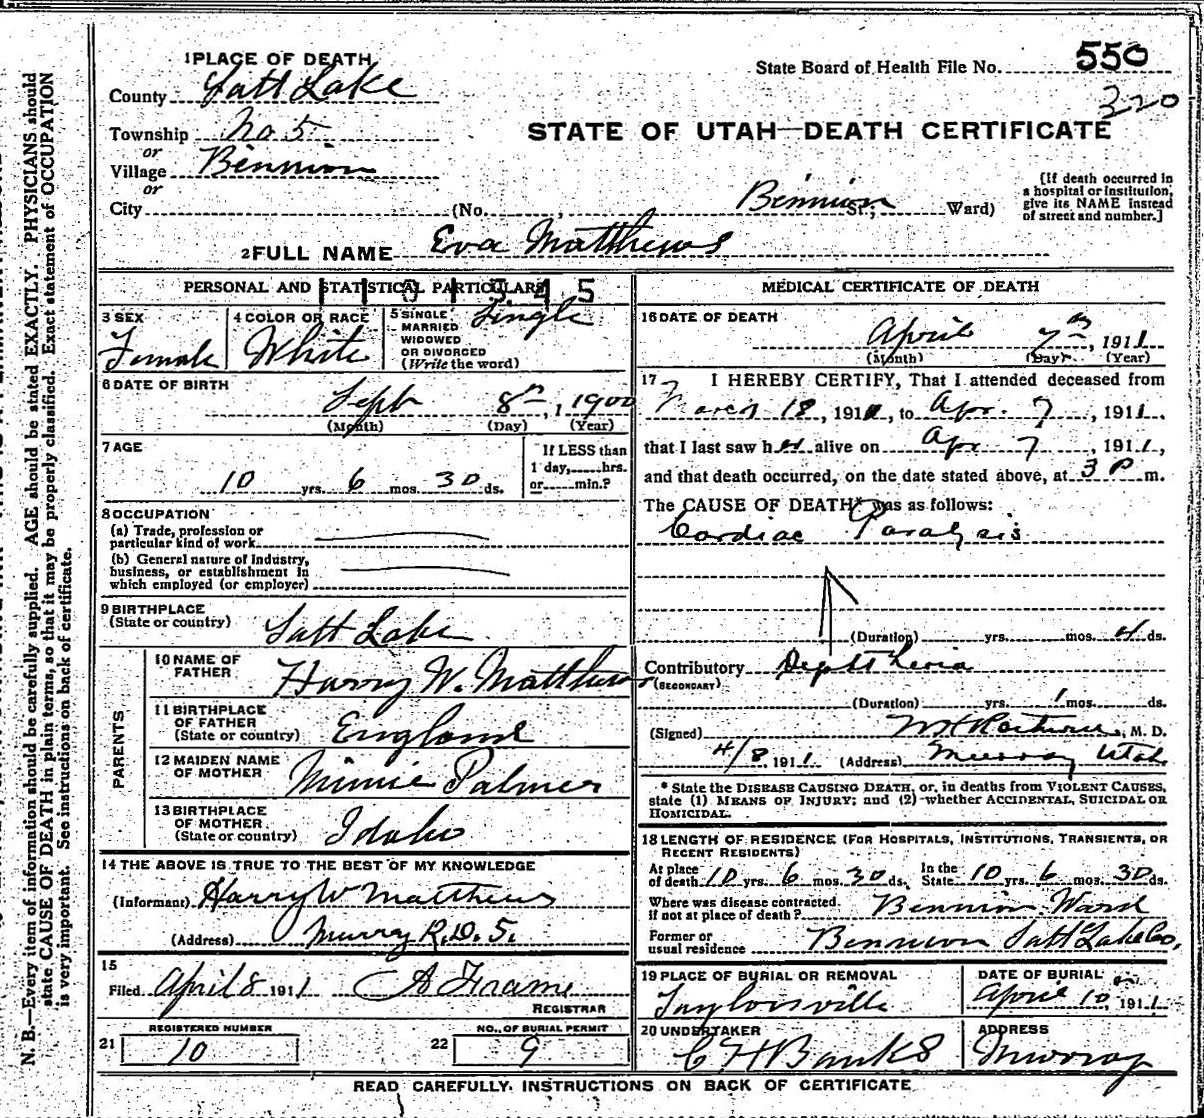 1 PLACE OF DEATH
State Board of Health File No. 550
320
County Salt Lake
Township No 5
or
Village Bennion
or
City
STATE OF UTAH—DEATH CERTIFICATE
(No. , Bennion St.; Ward)
[If death occurred in
a hospital or institution,
give its NAME instead
of street and number.]
2 FULL NAME Eva Matthews
PERSONAL AND STATISTICAL PARTICULARS
3 SEX
Female
4 COLOR OR RACE
White
5 SINGLE
MARRIED
WIDOWED
OR DIVORCED
(Write the word)
Single
6 DATE OF BIRTH
Sept 8th, 1 1900
(Month) (Day) (Year)
7 AGE
10 yrs. 6 mos. 30 ds.
If LESS than
1 day, hrs.
or min.?
8 OCCUPATION
(a) Trade, profession or
particular kind of work
(b) General nature of industry,
business, or establishment in
which employed (or employer)
9 BIRTHPLACE
(State or country) Salt Lake
PARENTS
10 NAME OF
FATHER Harry W. Matthews
11 BIRTHPLACE
OF FATHER
(State or country) England
12 MAIDEN NAME
OF MOTHER Minnie Palmer
13 BIRTHPLACE
OF MOTHER
(State or country) Idaho
14 THE ABOVE IS TRUE TO THE BEST OF MY KNOWLEDGE
(Informant) Harry W Matthews
(Address) Murray R.D. 5.
15
Filed April 8 1911 A Frame
REGISTRAR
REGISTERED NUMBER
21 10
NO. OF BURIAL PERMIT
22 9
MEDICAL CERTIFICATE OF DEATH
16 DATE OF DEATH
April 7th, 1911
(Month) (Day) (Year)
17 I HEREBY CERTIFY, That I attended deceased from
March 18, 1911, to Apr. 7, 1911,
that I last saw her alive on Apr 7, 1911,
and that death occurred, on the date stated above, at 3 P m.
The CAUSE OF DEATH* was as follows:
Cardiac Paralysis
(Duration) yrs. mos. 4 ds.
Contributory Diptheria
(SECONDARY)
(Duration) yrs. 1 mos. ds.
(Signed) , M. D.
4/8 1911 (Address) Murray Utah
* State the DISEASE CAUSING DEATH, or, in deaths from VIOLENT CAUSES,
state (1) MEANS OF INJURY; and (2) whether ACCIDENTAL, SUICIDAL OR
HOMICIDAL.
18 LENGTH OF RESIDENCE (FOR HOSPITALS, INSTITUTIONS, TRANSIENTS, OR
RECENT RESIDENTS)
At place
of death 10 yrs. 6 mos. 30 ds.
In the
State 10 yrs. 6 mos. 30 ds.
Where was disease contracted
if not at place of death? Bennion Ward
Former or
usual residence Bennion Salt Lake Co,
19 PLACE OF BURIAL OR REMOVAL
Taylorsville
DATE OF BURIAL
April 10, 1911
20 UNDERTAKER
C H Banks
ADDRESS
Murray
READ CAREFULLY INSTRUCTIONS ON BACK OF CERTIFICATE
N. B.—Every item of information should be carefully supplied. AGE should be stated EXACTLY. PHYSICIANS should
state CAUSE OF DEATH in plain terms, so that it may be properly classified. Exact statement of OCCUPATION
is very important. See instructions on back of certificate.